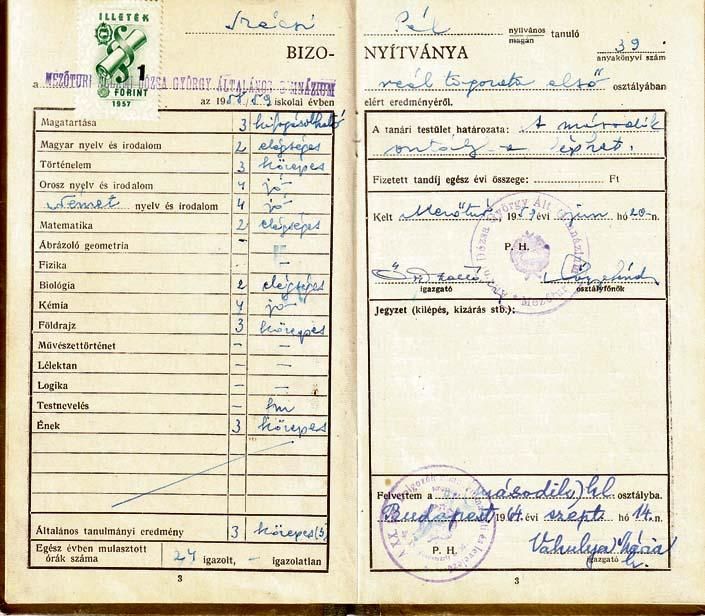 ILLETÉK
1
FORINT
1957
Szécsi
BIZO-
a MEZŐTURI ÁLLAMI DÓZSA GYÖRGY ÁLTALÁNOS GIMNÁZIUM
az 1958/59 iskolai évben
Magatartása 3 kifogásolható
Magyar nyelv és irodalom 2 elégséges
Történelem 3 közepes
Orosz nyelv és irodalom 4 jó
Német nyelv és irodalom 4 jó
Matematika 2 elégséges
Ábrázoló geometria - -
Fizika - -
Biológia 2 elégséges
Kémia 4 jó
Földrajz 3 közepes
Művészettörténet - -
Lélektan - -
Logika - -
Testnevelés - fm
Ének 3 közepes
Általános tanulmányi eredmény 3 közepes (3)
Egész évben mulasztott órák száma 24 igazolt, - igazolatlan
3
Pál nyilvános magán tanuló
NYÍTVÁNYA 39
anyakönyvi szám
reál tagozata első osztályában
elért eredményéről.
A tanári testület határozata: A második
osztályba léphet.
Fizetett tandíj egész évi összege: Ft
Kelt Mezőtúr, 1959 évi jun hó 20-n.
P. H.
igazgató osztályfőnök
Jegyzet (kilépés, kizárás stb.):
Felvettem a (második) II. osztályba.
Budapest 1964. évi szept. hó 14.n.
P. H. Mária
igazgató h.
3